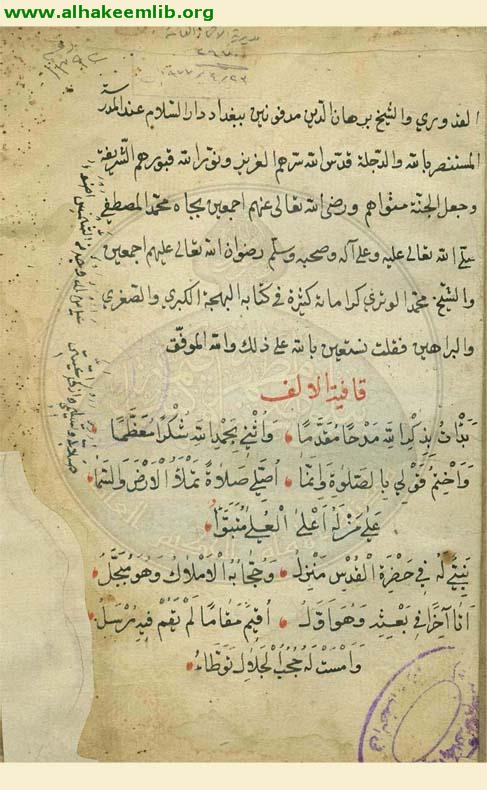 www.alhakeemlib.org
القدوري والشيخ برهان الدين مدفونين ببغداد دار السلام عند المدرسة
المستنصر بالله والدجلة قدس الله سرهم العزيز ونور الله قبورهم الشريفة
وجعل الجنة مثواهم ورضى الله تعالى عنهم اجمعين بجاه محمد المصطفى
صلى الله تعالى عليه وعلى آله وصحبه وسلم رضوان الله تعالى عليهم اجمعين
والشيخ محمد الوتري كراماته كثيرة في كتابه البهجة الكبرى والصغرى
والبراهين فقلت نستعين بالله على ذلك والله الموفق
قافية الالف
بدأت بذكر الله مدحا مقدما واثني بحمد الله شكرا معظما
واختم قولي بالصلوة وانما اصلي صلاة تملأ الارض والسما
على من له اعلى العلى متبوأ
نبي له في حضرة القدس منزل وحجابه الاملاك وهو مبجل
اتا آخرا في بعثه وهو اول اقيم مقاما لم يقم فيه مرسل
وامست له حجب الجلال توطاء